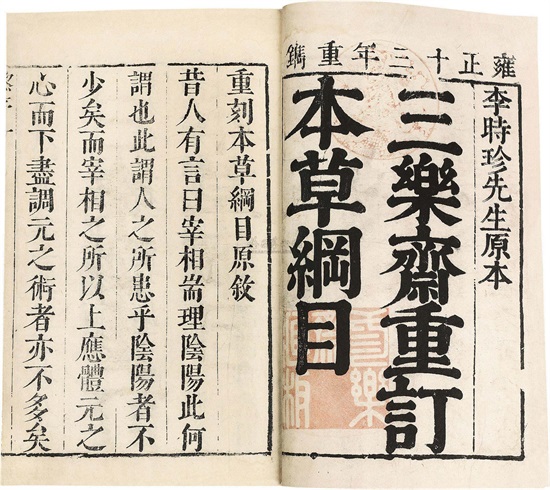 雍正十三年重鐫
李時珍先生原本
三樂齋重訂
本草綱目
重刻本草綱目原敘
昔人有言曰宰相耑理陰陽此何
謂也此謂人之所患乎陰陽者不
少矣而宰相之所以上應體元之
心而下盡調元之術者亦不多矣